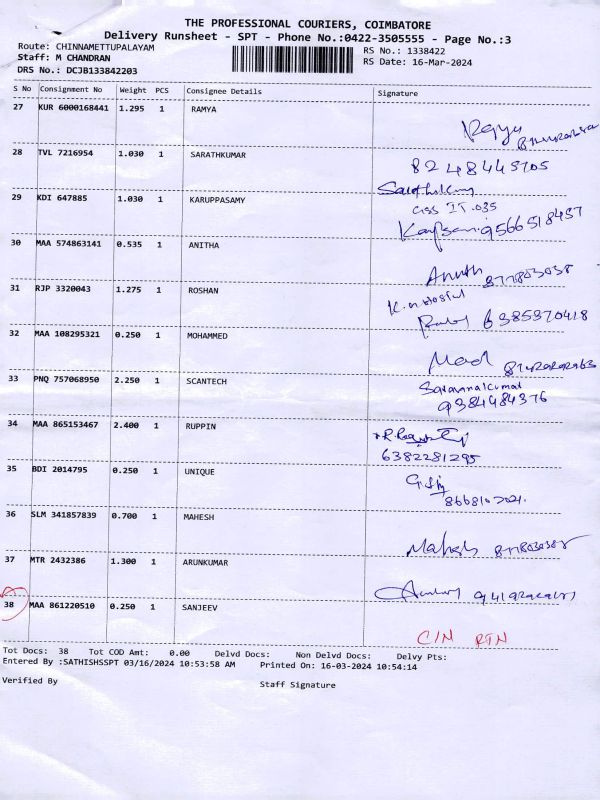 THE PROFESSIONAL COURIERS, COIMBATORE
Delivery Runsheet - SPT - Phone No.:0422-3505555 - Page No.:3
Route: CHINNAMETTUPALAYAM RS No.: 1338422
Staff: M CHANDRAN RS Date: 16-Mar-2024
DRS No.: DCJB133842203
S No Consignment No Weight PCS Consignee Details Signature
27 KUR 6000168441 1.295 1 RAMYA
28 TVL 7216954 1.030 1 SARATHKUMAR
29 KDI 647885 1.030 1 KARUPPASAMY
9566518457
30 MAA 574863141 0.535 1 ANITHA
31 RJP 3320043 1.275 1 ROSHAN
6385370418
32 MAA 108295321 0.250 1 MOHAMMED
33 PNQ 757068950 2.250 1 SCANTECH
Saravanakumar
34 MAA 865153467 2.400 1 RUPPIN
6382281295
35 BDI 2014795 0.250 1 UNIQUE
36 SLM 341857839 0.700 1 MAHESH
Mahesh
37 MTR 2432386 1.300 1 ARUNKUMAR
38 MAA 861220510 0.250 1 SANJEEV
C/N RTN
Tot Docs: 38 Tot COD Amt: 0.00 Delvd Docs: Non Delvd Docs: Delvy Pts:
Entered By :SATHISHSSPT 03/16/2024 10:53:58 AM Printed On: 16-03-2024 10:54:14
Verified By Staff Signature